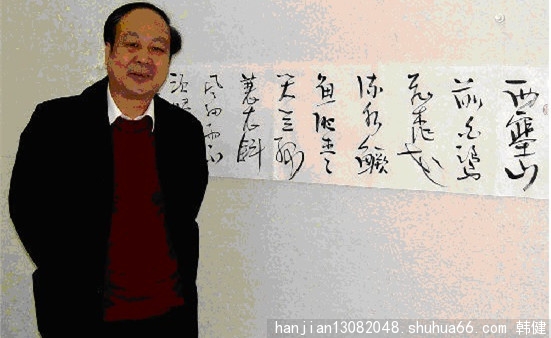 西塞山
前白鹭
飞桃花
流水鳜
鱼肥青
箬笠绿
蓑衣斜
风细雨不
须
hanjian13082048.shuhua66.com 韩健